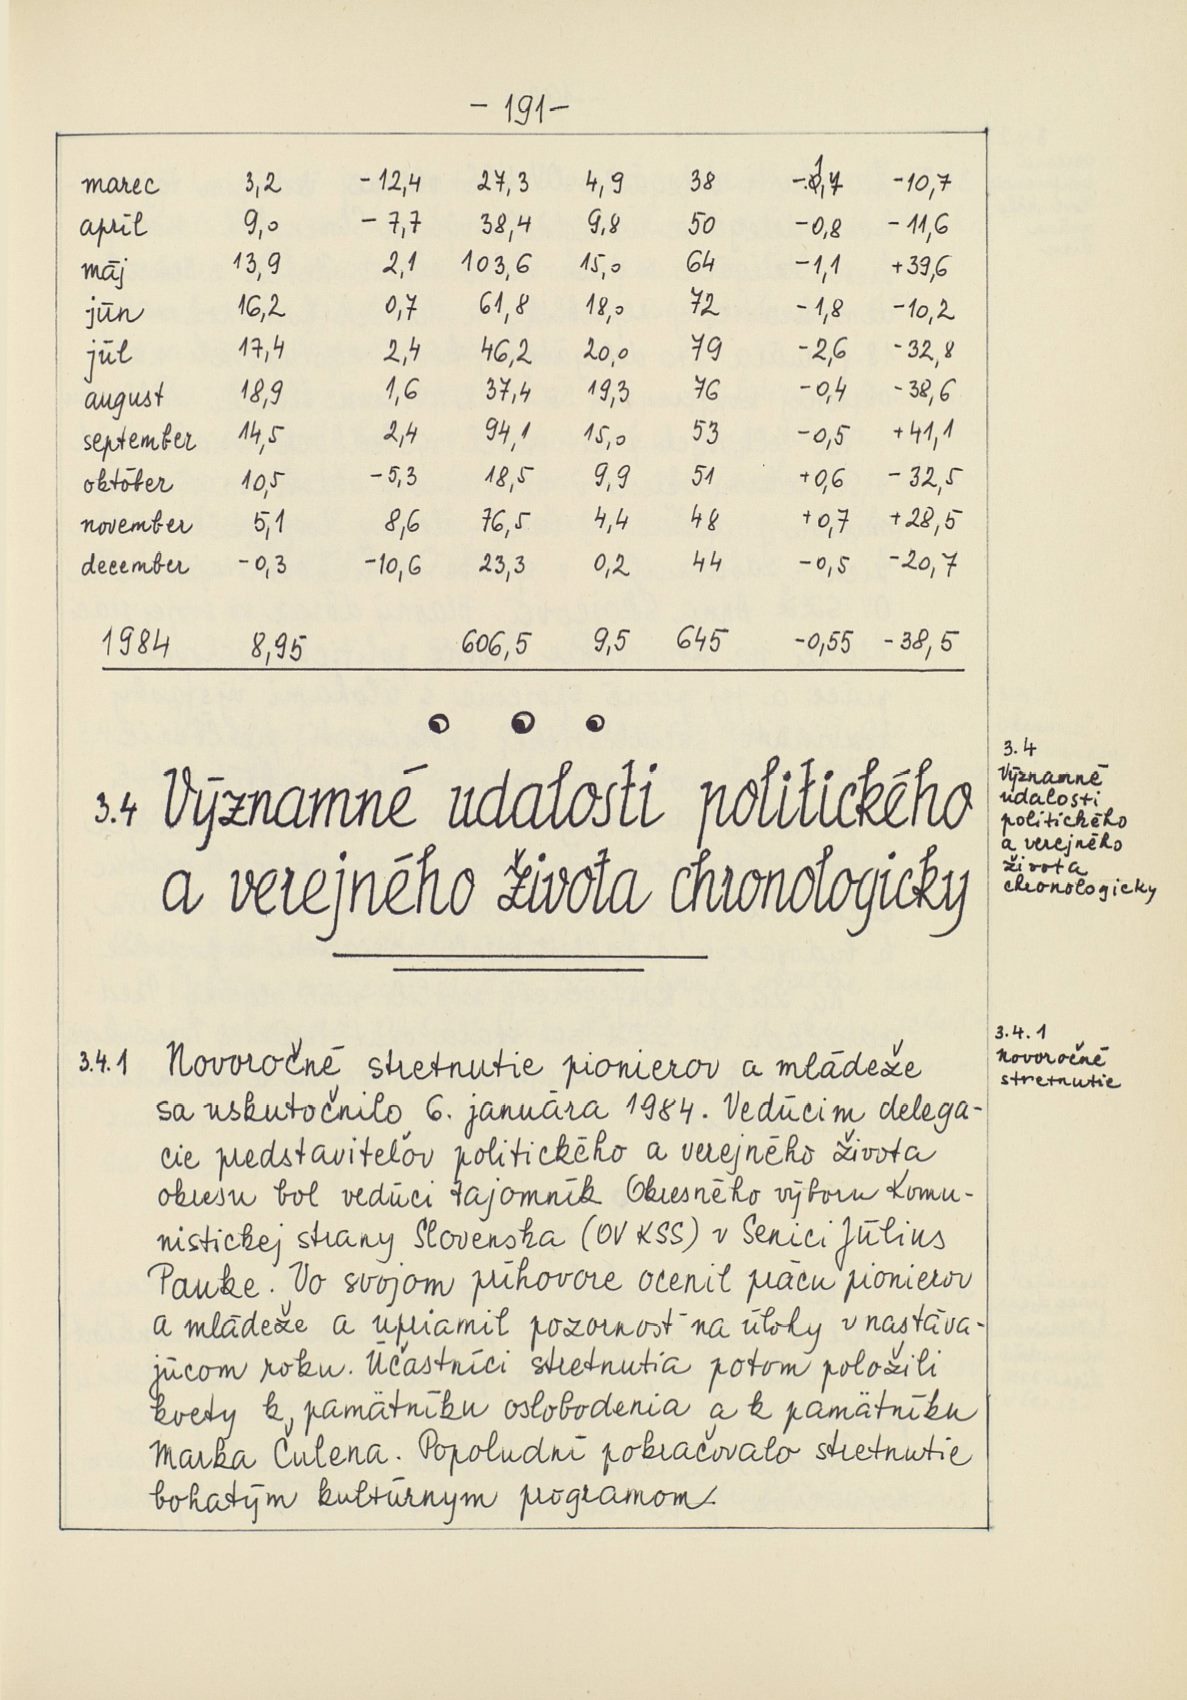 - 191 -
marec 3,2 -12,4 27,3 4,9 38 -1,7 -10,7
apríl 9,0 - 7,7 38,4 9,8 50 -0,8 - 11,6
máj 13,9 2,1 103,6 15,0 64 -1,1 +39,6
jún 16,2 0,7 61,8 18,0 72 -1,8 -10,2
júl 17,4 2,4 46,2 20,0 79 -2,6 -32,8
august 18,9 1,6 37,4 19,3 76 -0,4 -38,6
september 14,5 2,4 94,1 15,0 53 -0,5 +41,1
október 10,5 -5,3 18,5 9,9 51 +0,6 - 32,5
november 5,1 8,6 76,5 4,4 48 +0,7 +28,5
december -0,3 -10,6 23,3 0,2 44 -0,5 -20,7
1984 8,95 606,5 9,5 645 -0,55 -38,5
3.4 Významné udalosti politického
a verejného života chronologicky
3.4
Významné
udalosti
politického
a verejného
života
chronologicky
3.4.1 Novoročné stretnutie pionierov a mládeže
sa uskutočnilo 6. januára 1984. Vedúcim delega-
cie predstaviteľov politického a verejného života
okresu bol vedúci tajomník Okresného výboru Komu-
nistickej strany Slovenska (OV KSS) v Senici Július
Pauke. Vo svojom príhovore ocenil prácu pionierov
a mládeže a upriamil pozornosť na úlohy v nastáva-
júcom roku. Účastníci stretnutia potom položili
kvety k pamätníku oslobodenia a k pamätníku
Marka Čulena. Popoludní pokračovalo stretnutie
bohatým kultúrnym programom.
3.4.1
novoročné
stretnutie